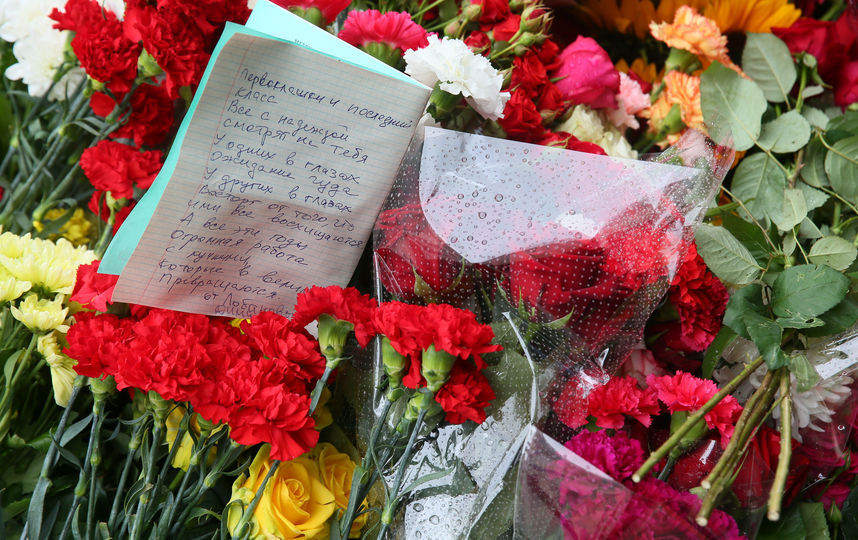 Первоклашки и последний
класс
Все с надеждой
смотрят на Тебя
У одних в глазах
Ожидание чуда
У других в глазах
Восторг от того, что
ими все восхищаются
А все эти годы
Огромная работа
с лучшими,
которые в
Превращаются
от